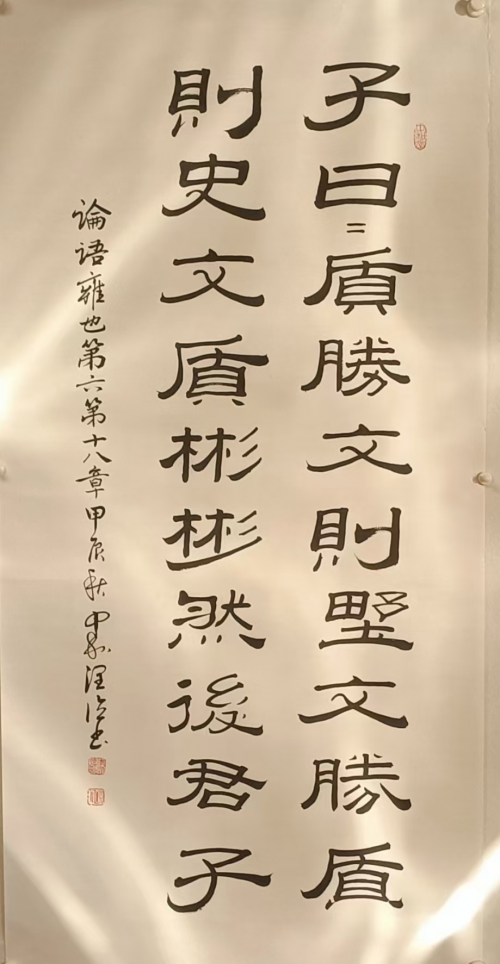 子曰〓質勝文則野文勝質
則史文質彬彬然後君子
論语雍也第六第十八章甲辰秋书